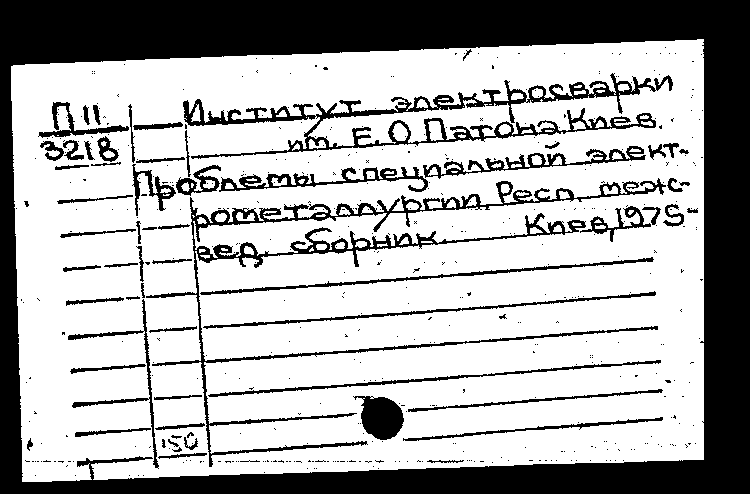 П11 Институт электросварки
3218 им. Е.О. Патона. Киев.
Проблемы специальной элект-
рометаллургии. Респ. меж-
вед. сборник. Киев, 1975-
150